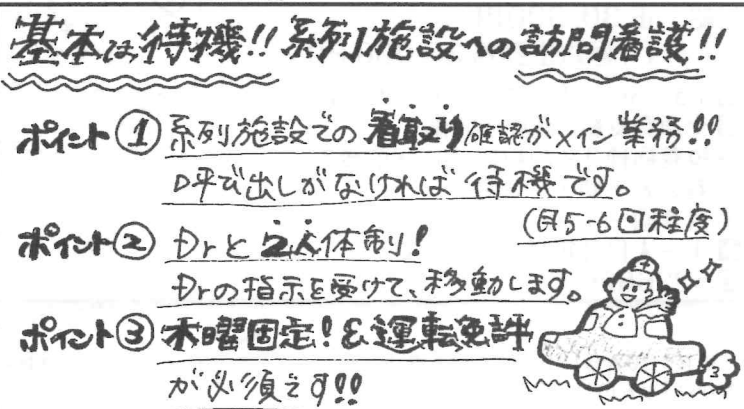 基本は待機!! 系列施設への訪問看護!!
ポイント① 系列施設での看取り確認がメイン業務!!
呼び出しがなければ待機です。
(月5-6回程度)
ポイント② Drと2人体制!
Drの指示を受けて、移動します。
ポイント③ 木曜固定!&運転免許
が必須です!!